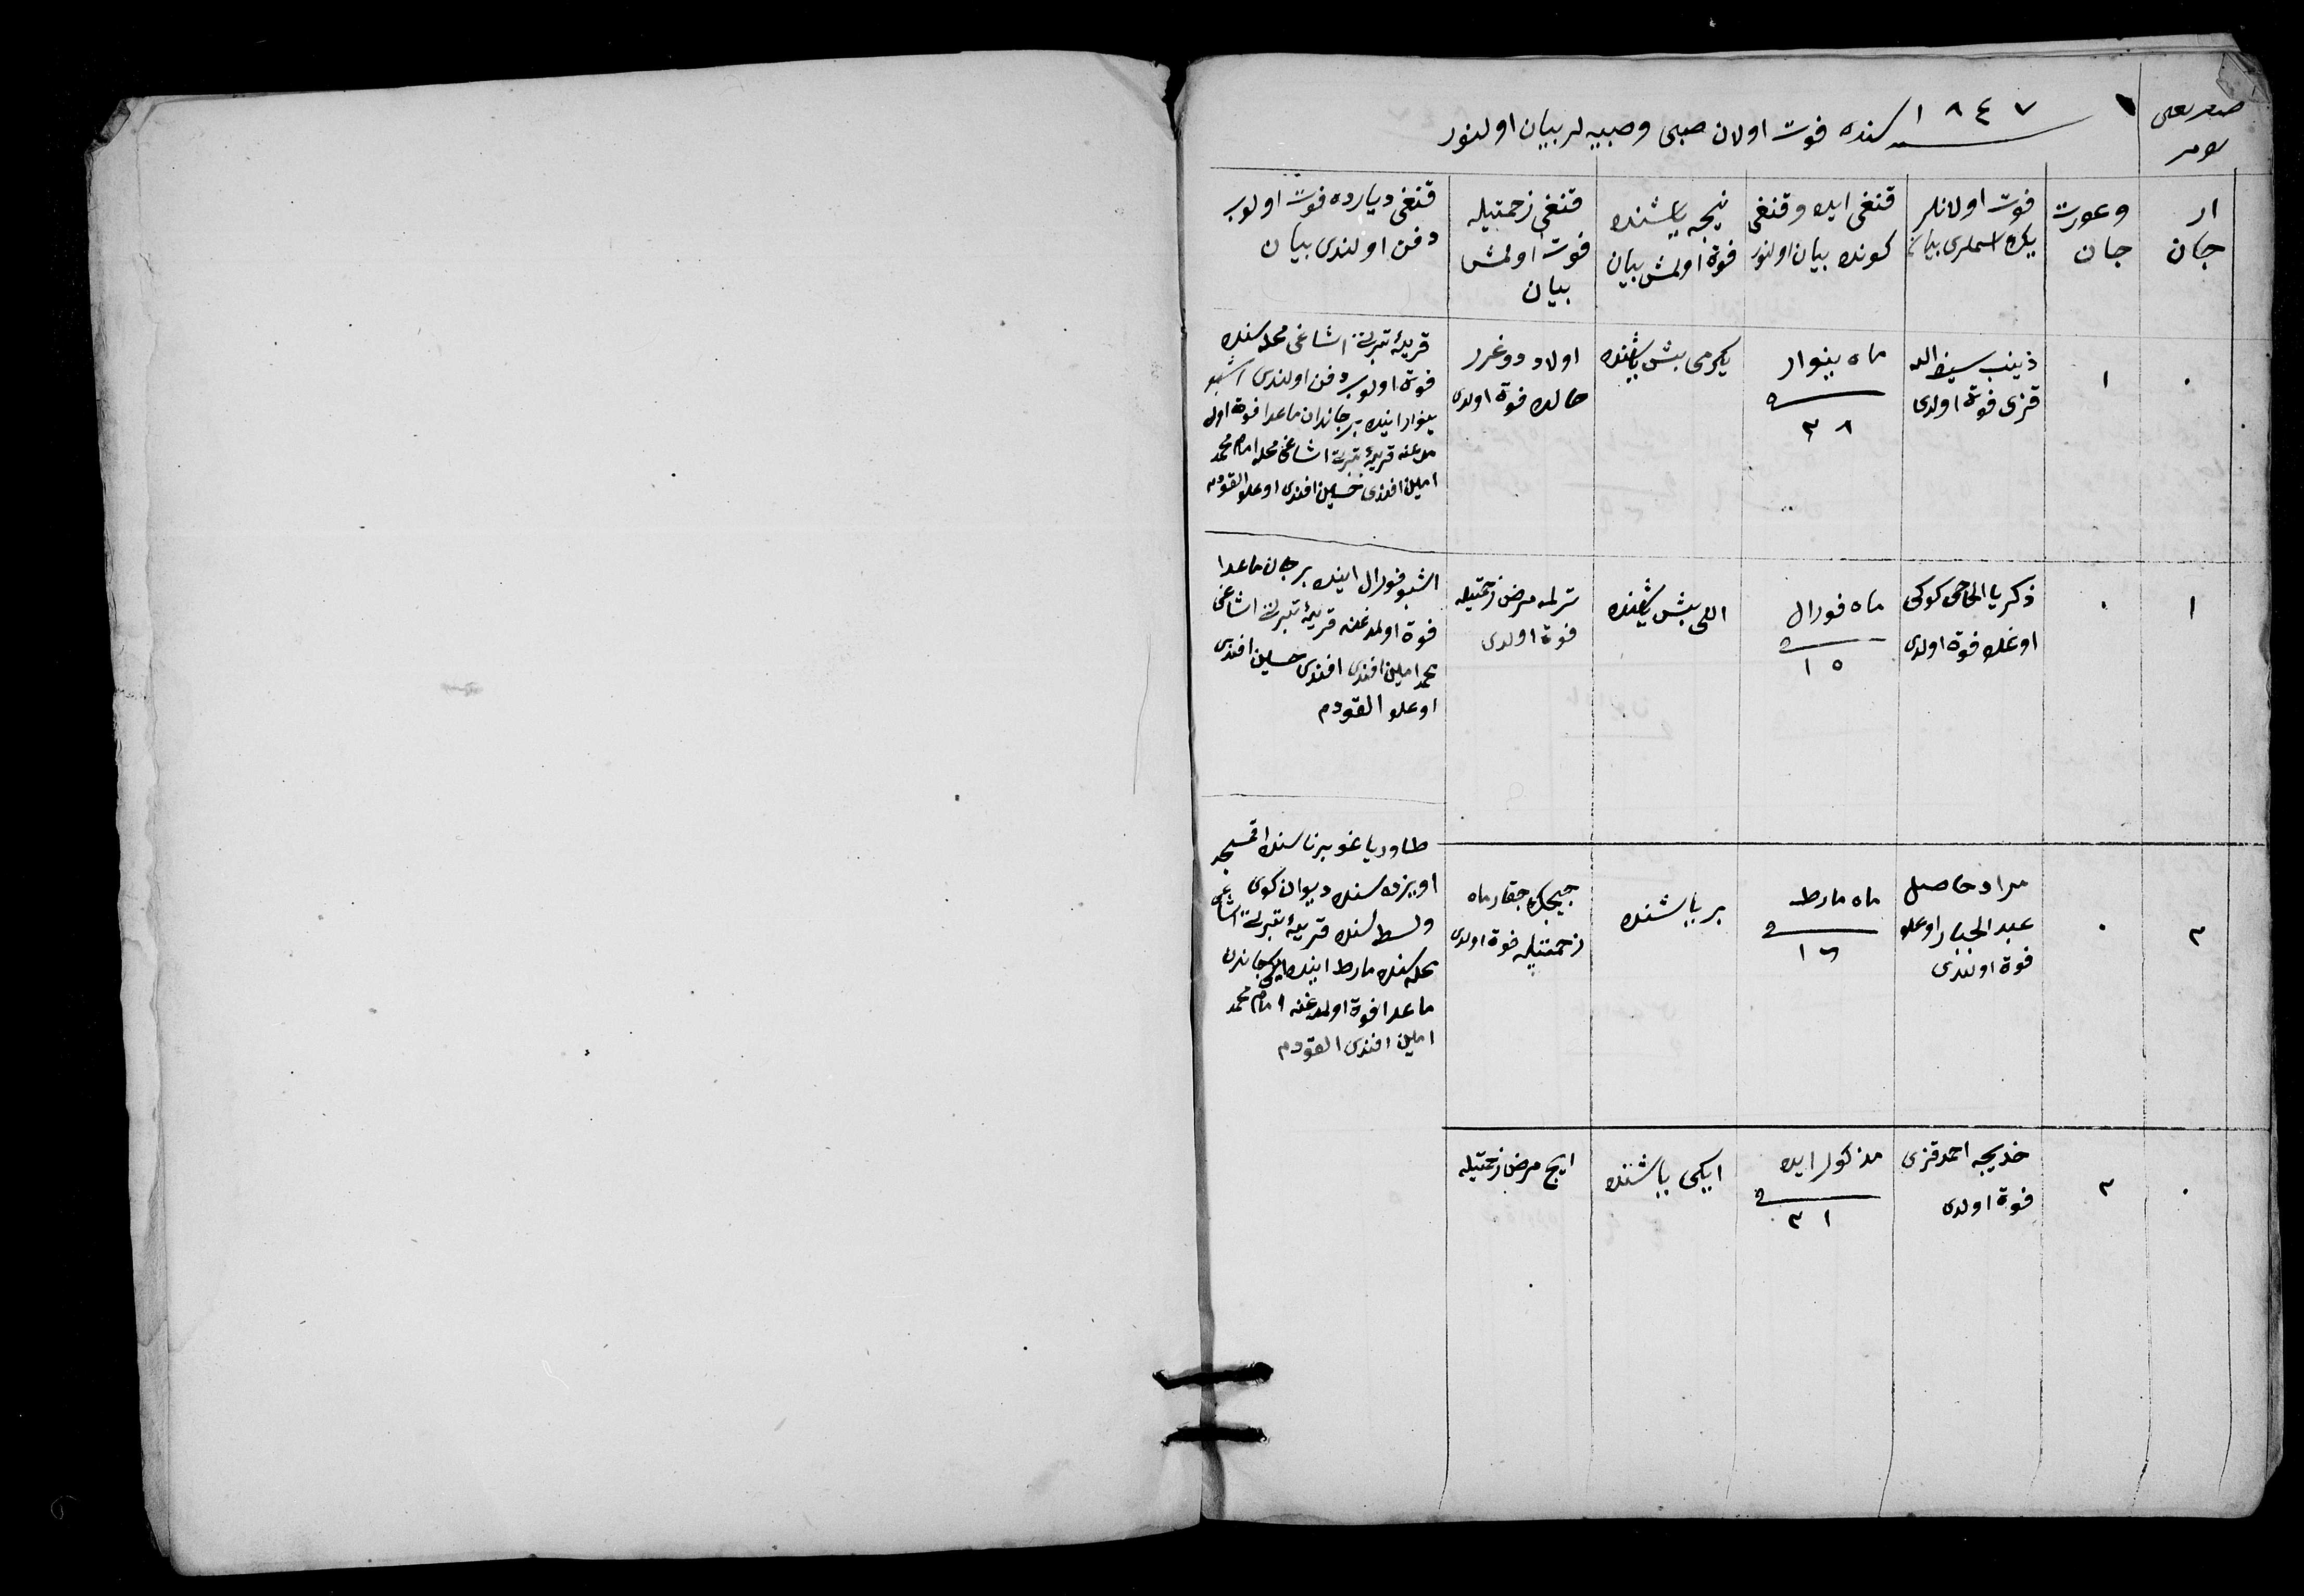 ١٨٤٧
سنده فوت اولان صبی و صبیه لر بیان اولنور
ار
جان
و عورت
جان
فوت اولانلر
بیان
قنغی ایده و قنغی
كونده بیان اولنور
نیچه یاشنده
فوة اولمش بیان
قنغی زحمتیله
فوت اولمش
بیان
قنغی دیارده فوت اولوب
دفن اولندی بیان
٠
١
ذینب سیف الله
قزی فوة اولدی
ماه ینوار
فی
٢٨
یكرمی بش یاشنده
اولاد دوغرر
حالده فوة اولدی
قریۀ اشاغی محله سنده
فوة اولوب دفن اولندی اشبو
ینوار اینده بر جاندان ماعدا فوة
قریۀ اشاغی محله امام محمد
امین افندی حسین افندی اوغلو القودم
١
٠
ذكریا الحاجی كوكی
اوغلو فوة اولدی
ماه فورال
فی
١٥
اللی بش یاشنده
ترلمه مرض زحمتیله
فوة اولدی
اشبو فورال اینده بر جان ماعدا
فوة اولمدغنه قریۀ اشاغی
محمد امین افندی افندی حسین افندی
اوغلو القودم
٢
٠
مراد حاصل
عبد الجبار اوغلو
فوة اولندی
ماه مارط
فی
١٦
بر یاشنده
چیچك چقارماه
زحمتیله فوة اولدی
اقمسجد
اویزده سنده دیوان كوی
ولسطسنده قریۀ اشاغی
محله سنده مارط اینده ایكی جاندن
ماعدا فوة اولمدغنه امام محمد
امین افندی القودم
٠
٢
خدیجه احمد قزی
فوة اولدی
مذكور ایده
فی
٢١
ایكی یاشنده
ایچ مرض زحمتیله